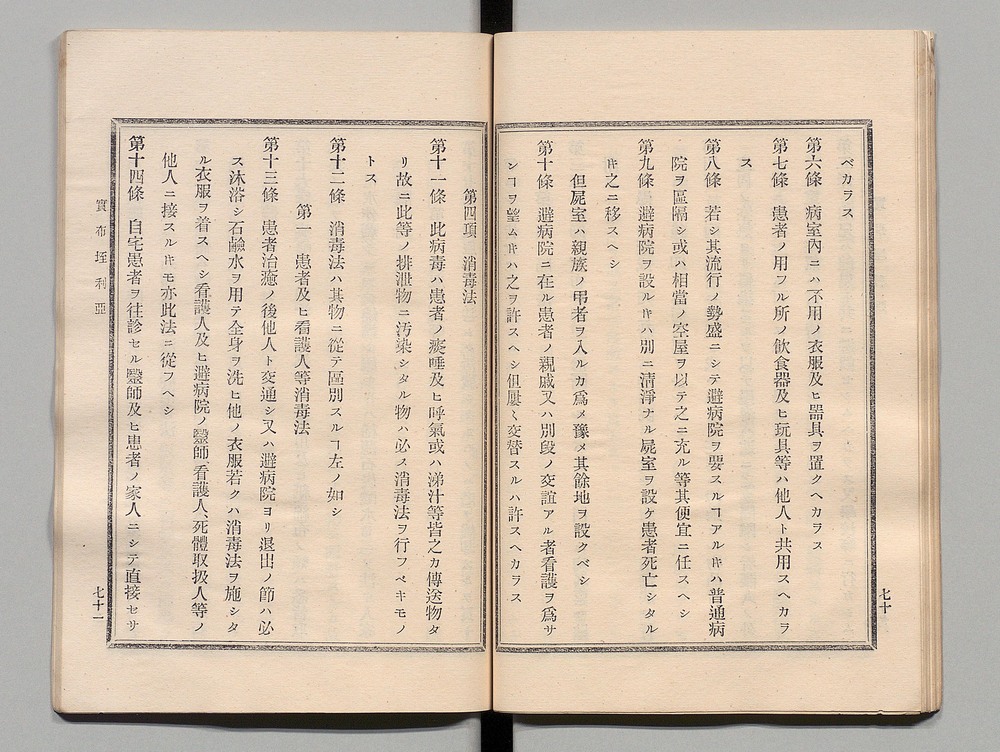 ベカラス
第六條　病室內ニハ不用ノ衣服及ヒ器具ヲ置クヘカラス
第七條　患者ノ用フル所ノ飮食器及ヒ玩具等ハ他人ト共用スヘカラ
ス
第八條　若シ其流行ノ勢盛ニシテ避病院ヲ要スルヿアルキハ普通病
院ヲ區隔シ或ハ相當ノ空屋ヲ以テ之ニ充ル等其便宜ニ任スヘシ
第九條　避病院ヲ設ルキハ別ニ清淨ナル屍室ヲ設ケ患者死亡シタル
キ之ニ移スヘシ
但屍室ハ親族ノ弔者ヲ入ルカ爲メ豫メ其餘地ヲ設クベシ
第十條　避病院ニ在ル患者ノ親戚又ハ別段ノ交誼アル者看護ヲ爲サ
ンヿヲ望ムキハ之ヲ許スヘシ但屢〱交替スルハ許スヘカラス
七十
第四項　消毒法
第十一條　此病毒ハ患者ノ痰唾及ヒ呼氣或ハ涕汁等皆之カ傳送物タ
リ故ニ此等ノ排泄物ニ汚染シタル物ハ必ス消毒法ヲ行フベキモノ
トス
第十二條　消毒法ハ其物ニ從テ區別スルヿ左ノ如シ
第一　患者及ヒ看護人等消毒法
第十三條　患者治癒ノ後他人ト交通シ又ハ避病院ヨリ退出ノ節ハ必
ス沐浴シ石鹼水ヲ用テ全身ヲ洗ヒ他ノ衣服若クハ消毒法ヲ施シタ
ル衣服ヲ着スヘシ看護人及ヒ避病院ノ醫師看護人、死體取扱人等ノ
他人ニ接スルキモ亦此法ニ從フヘシ
第十四條　自宅患者ヲ往診セル醫師及ヒ患者ノ家人ニシテ直接セサ
實布垤利亞
七十一